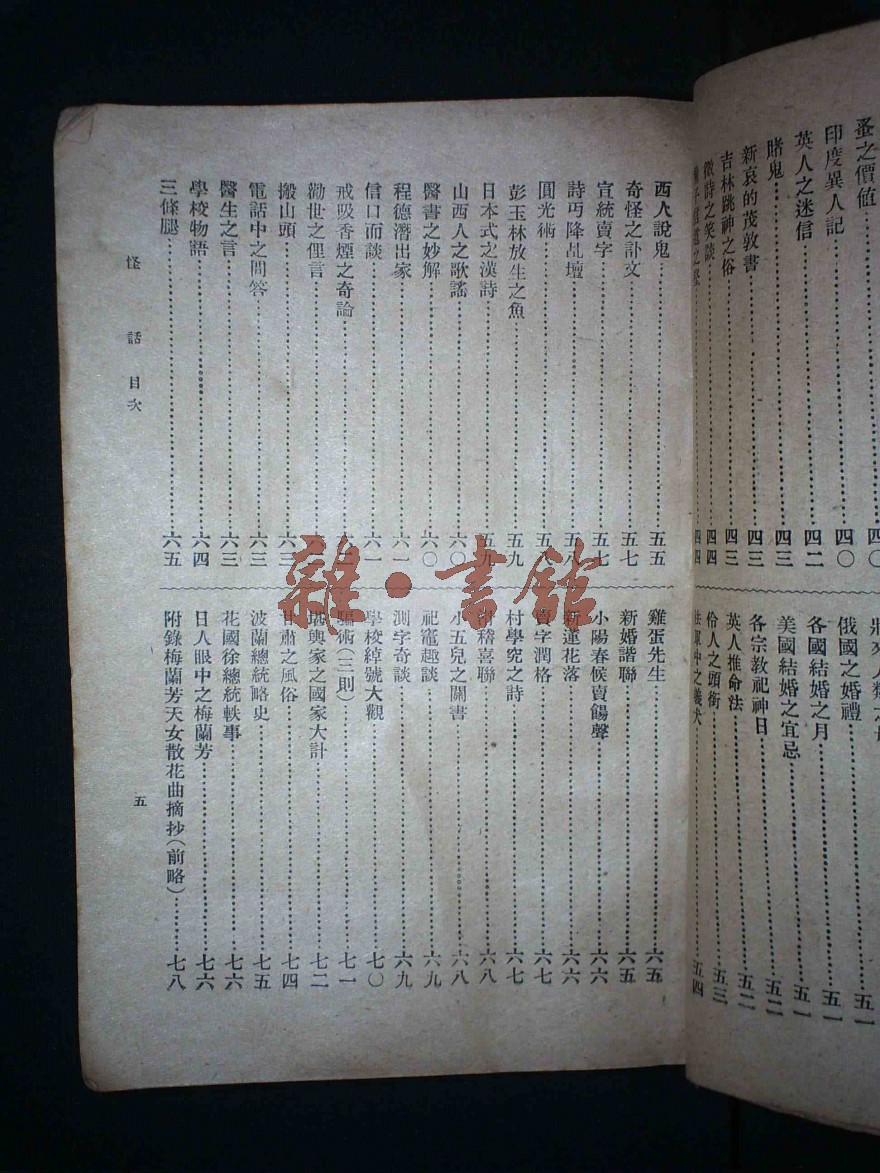 蚤之價値 四〇
印度異人記 四〇
英人之迷信 四二
賭鬼 四三
新哀的茂敦書 四三
吉林跳神之俗 四三
徵詩之笑談 四四
四四
俄國之婚禮 五一
各國結婚之月 五一
美國結婚之宜忌 五一
各宗教祀神日 五二
英人推命法 五二
伶人之頭銜 五三
軍中之義犬 五四
西人說鬼 五五
奇怪之訃文 五七
宣統賣字 五七
詩丐降乩壇 五八
圓光術 五八
彭玉林放生之魚 五九
日本式之漢詩 五九
山西人之歌謠 六〇
醫書之妙解 六〇
程德潛出家 六一
信口而談 六一
戒吸香煙之奇論
勸世之俚言
搬山頭 六三
電話中之問答 六三
醫生之言 六三
學校物語 六四
三條腿 六五
雞蛋先生 六五
新婚諧聯 六五
小陽春候賣餳聲 六六
新蓮花落 六六
賣字潤格 六七
村學究之詩 六七
滑稽喜聯 六八
小五兒之鬮書 六八
祀竈趣談 六九
測字奇談 六九
學校綽號大觀 七〇
騙術(三則) 七一
堪輿家之國家大計 七二
甘肅之風俗 七四
波蘭總統略史 七五
花國徐總統軼事 七六
日人眼中之梅蘭芳 七六
附錄梅蘭芳天女散花曲摘抄(前略) 七八
怪話 目次 五
雜·書館